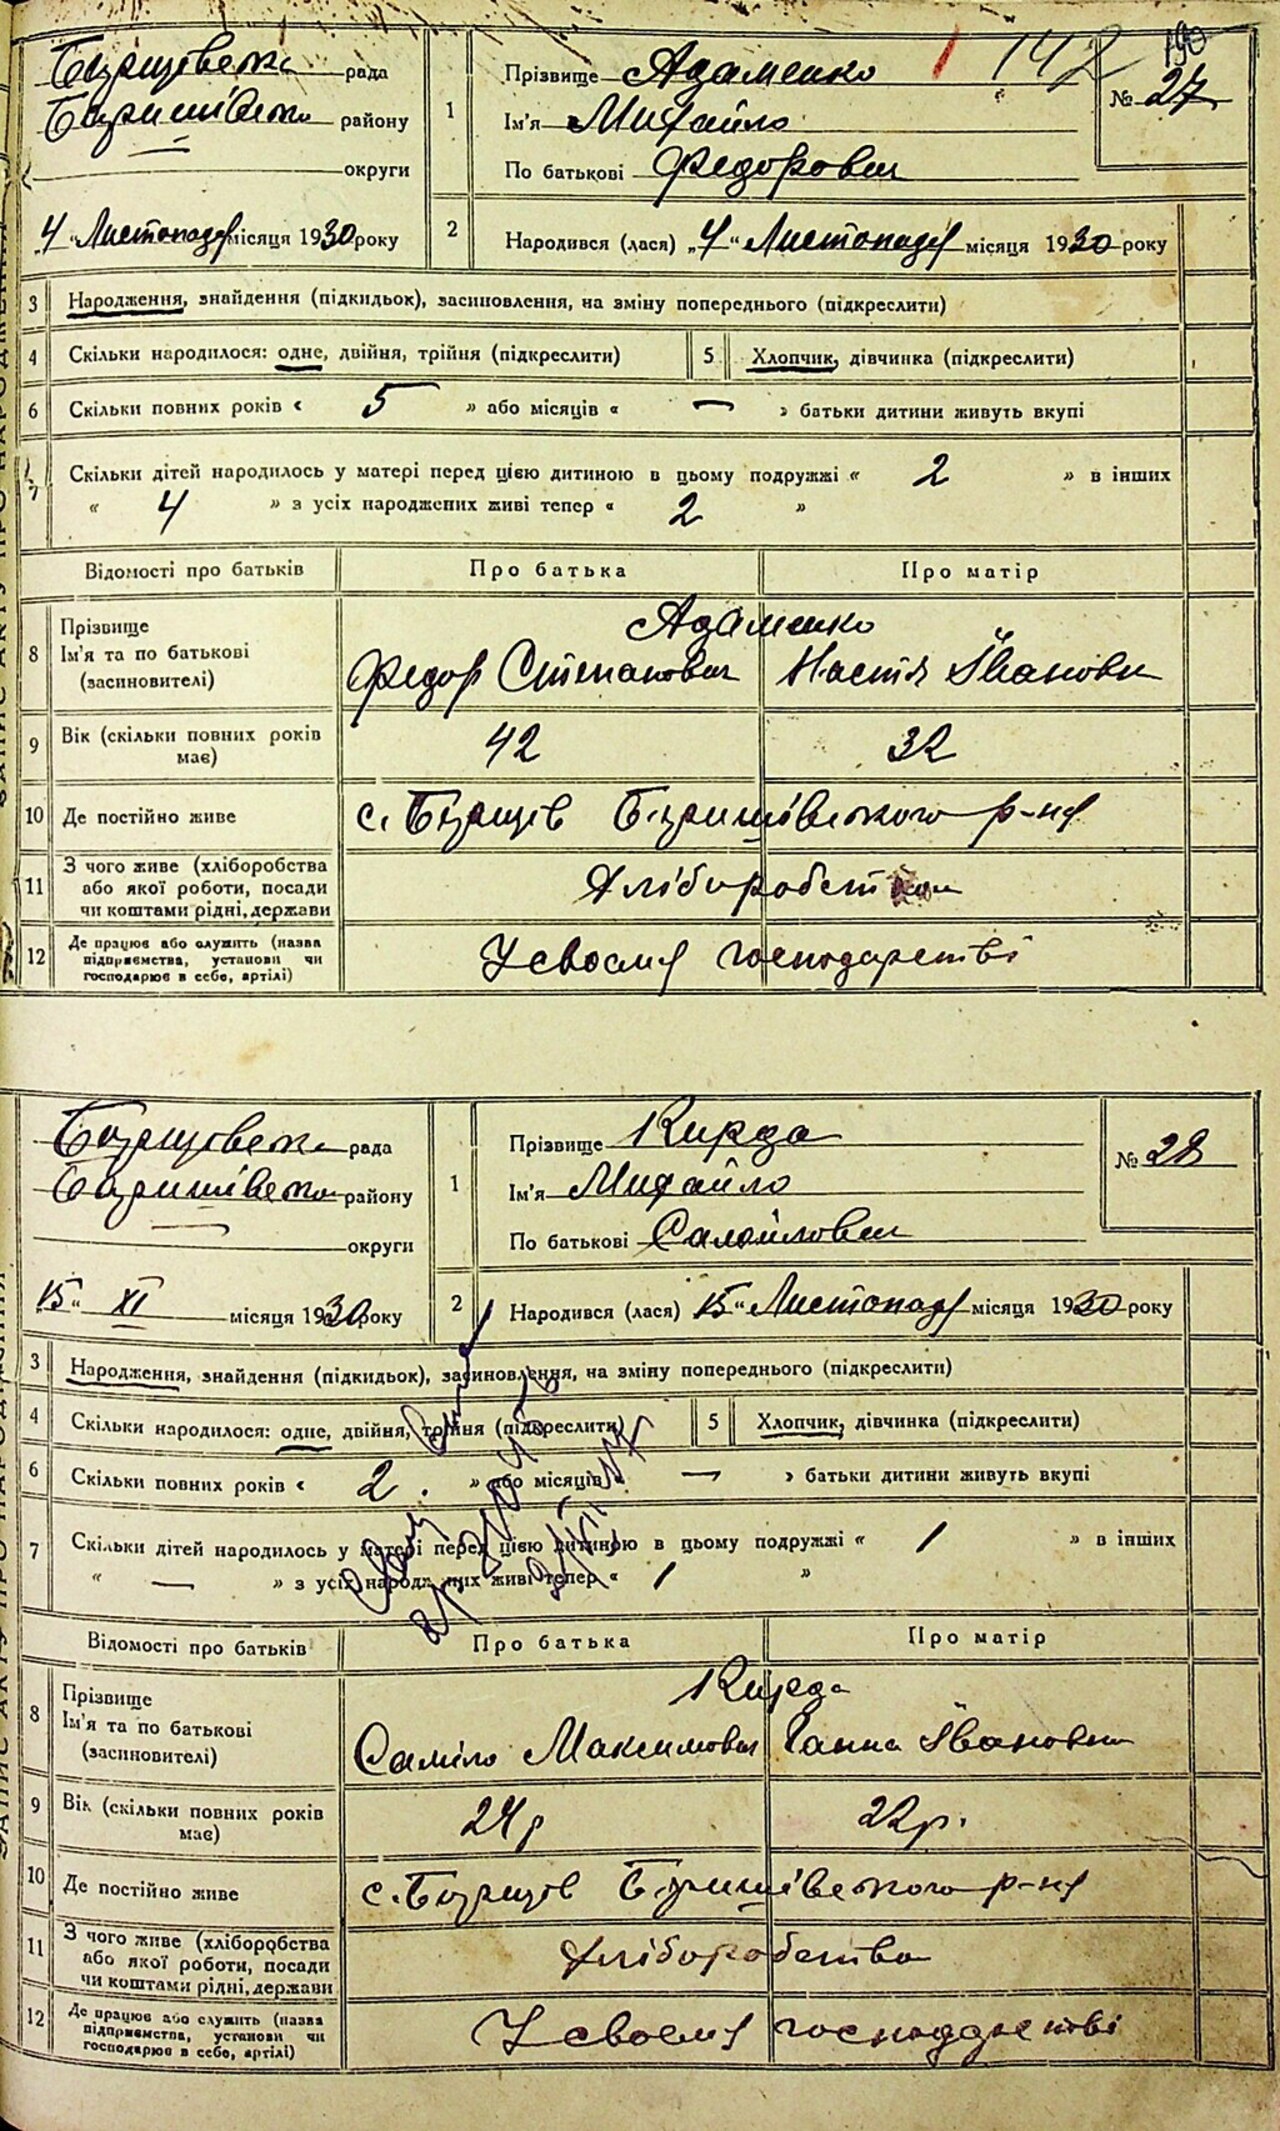 Борщівська рада
Баришівського району
округи
„4“ Листопада місяця 1930 року
1
Прізвище Адаменко
Ім'я Михайло
По батькові Федорович
142
190
№ 27
2
Народився (лася) „4“ Листопада місяця 1930 року
3 Народження, знайдення (підкидьок), засиновлення, на зміну попереднього (підкреслити)
4 Скільки народилося: одне, двійня, трійня (підкреслити) 5 Хлопчик, дівчинка (підкреслити)
6 Скільки повних років « 5 » або місяців « — » батьки дитини живуть вкупі
7 Скільки дітей народилось у матері перед цією дитиною в цьому подружжі « 2 » в інших
« 4 » з усіх народжених живі тепер « 2 »
Відомості про батьків Про батька Про матір
8 Прізвище Ім'я та по батькові (засиновителі)
Адаменко
Федор Степанович Настя Івановна
9 Вік (скільки повних років має) 42 32
10 Де постійно живе с. Борщів Баришівського р-на
11 З чого живе (хліборобства або якої роботи, посади чи коштами рідні, держави
Хліборобством
12 Де працює або служить (назва підприємства, установи чи господарює в себе, артілі)
У своему господарстві
Борщівська рада
Баришівського району
округи
15“ XI місяця 1930 року
1
Прізвище Кирда
Ім'я Михайло
По батькові Самойлович
№ 28
2
Народився (лася) 15“ Листопада місяця 1930 року
3 Народження, знайдення (підкидьок), засиновлення, на зміну попереднього (підкреслити)
4 Скільки народилося: одне, двійня, трійня (підкреслити) 5 Хлопчик, дівчинка (підкреслити)
6 Скільки повних років « 2 . » або місяців « — » батьки дитини живуть вкупі
7 Скільки дітей народилось у матері перед цією дитиною в цьому подружжі « 1 » в інших
« — » з усіх народжених живі тепер « 1 »
Відомості про батьків Про батька Про матір
8 Прізвище Ім'я та по батькові (засиновителі)
Кирда
Саміло Максимович Ганна Івановна
9 Вік (скільки повних років має) 24р 22р.
10 Де постійно живе с. Борщів Баришівського р-на
11 З чого живе (хліборобства або якої роботи, посади чи коштами рідні, держави
Хліборобство
12 Де працює або служить (назва підприємства, установи чи господарює в себе, артілі)
У своему господарстві